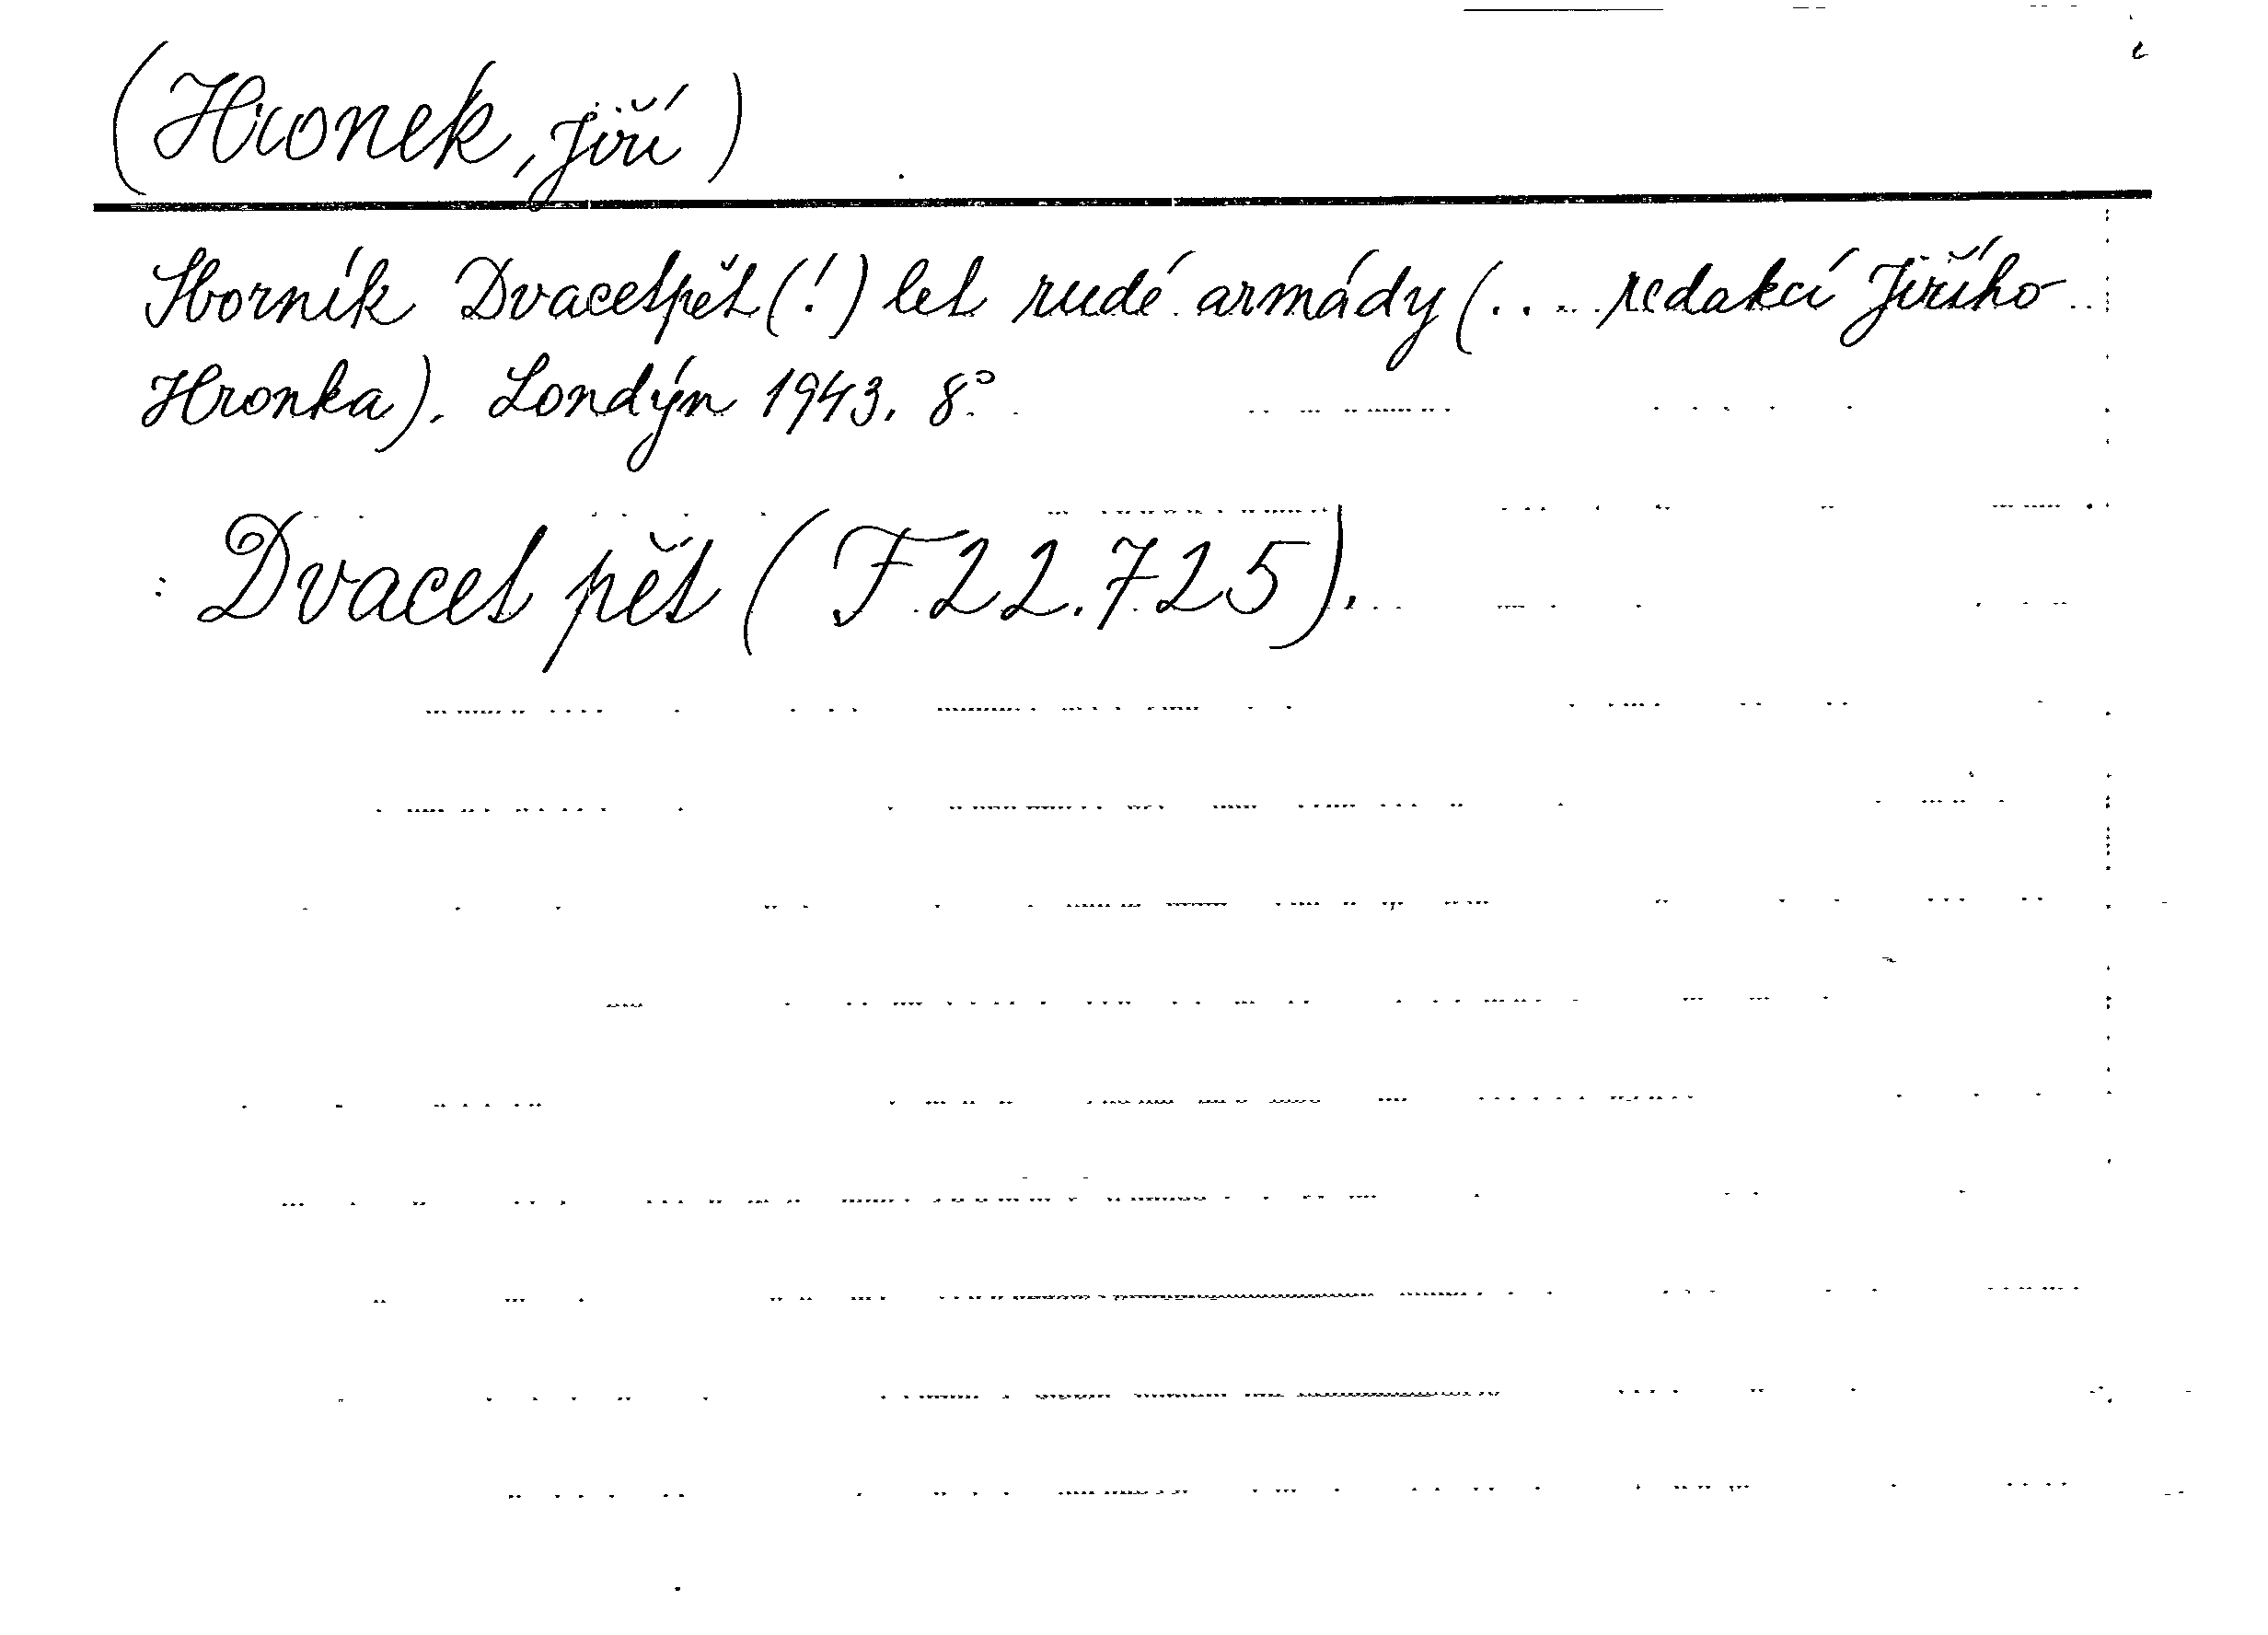 (Hronek, Jiří)
Sborník Dvacetpět(!) let rudé armády (.... redakcí Jiřího
Hronka). Londýn 1943. 8°.
: Dvacet pět (F 22.725).